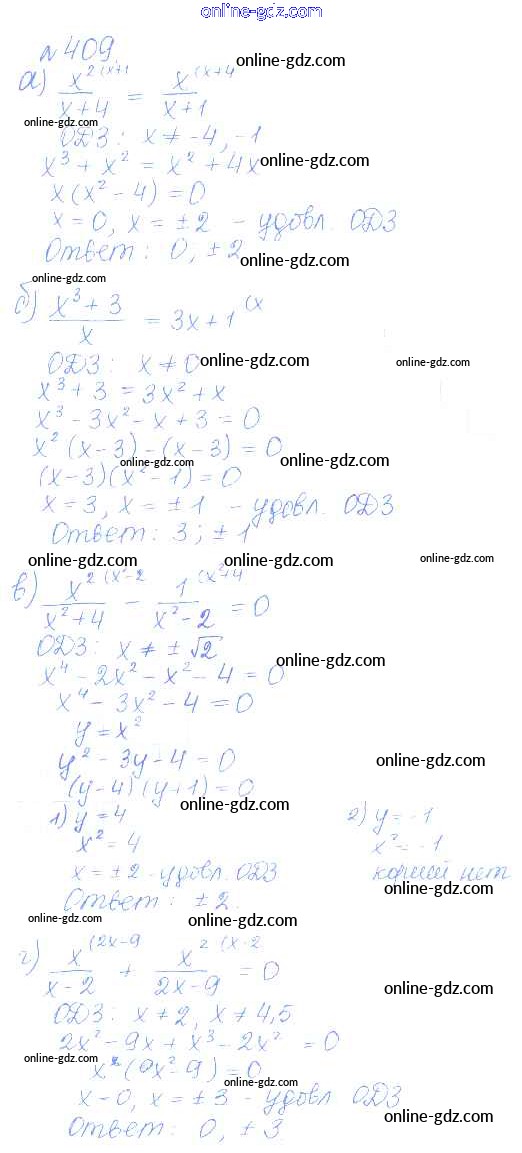 online-gdz.com
№ 409.
online-gdz.com
а) x^2 (x+1 / x+4 = x (x+4 / x+1
online-gdz.com
ОДЗ: x ≠ -4, -1
x^3 + x^2 = x^2 + 4x online-gdz.com
x(x^2 - 4) = 0
x = 0, x = ±2 - удовл. ОДЗ
Ответ: 0; ±2
online-gdz.com
online-gdz.com
б) x^3 + 3 / x = 3x + 1 (x
ОДЗ: x ≠ 0 online-gdz.com online-gdz.com
x^3 + 3 = 3x^2 + x
x^3 - 3x^2 - x + 3 = 0
x^2 (x - 3) - (x - 3) = 0
online-gdz.com online-gdz.com
(x - 3)(x^2 - 1) = 0
x = 3, x = ±1 - удовл. ОДЗ
online-gdz.com
Ответ: 3; ±1
online-gdz.com online-gdz.com online-gdz.com
в) x^2 (x^2-2 / x^2+4 - 1 (x^2+4 / x^2-2 = 0
ОДЗ: x ≠ ±√2
online-gdz.com
x^4 - 2x^2 - x^2 - 4 = 0
x^4 - 3x^2 - 4 = 0
y = x^2
y^2 - 3y - 4 = 0 online-gdz.com
(y - 4)(y + 1) = 0
online-gdz.com
1) y = 4 2) y = -1
x^2 = 4 x^2 = -1
x = ±2 - удовл. ОДЗ корней нет
online-gdz.com
Ответ: ±2.
online-gdz.com online-gdz.com
г) x (2x-9 / x-2 + x^2 (x-2 / 2x-9 = 0
online-gdz.com
ОДЗ: x ≠ 2, x ≠ 4,5
2x^2 - 9x + x^3 - 2x^2 = 0
online-gdz.com online-gdz.com
x (x^2 - 9) = 0
online-gdz.com
x = 0, x = ±3 - удовл. ОДЗ
online-gdz.com
Ответ: 0, ±3